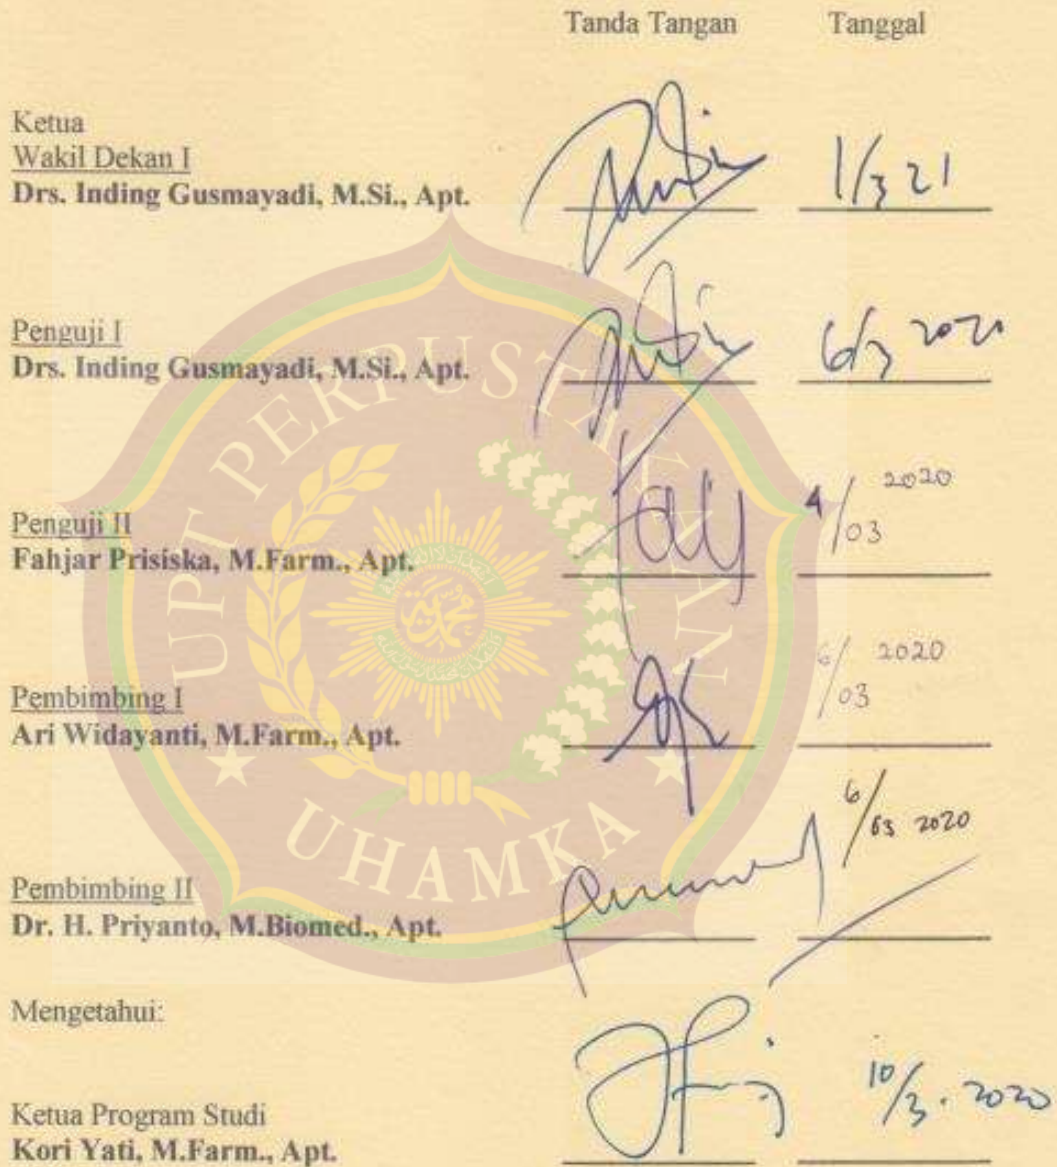 Tanda Tangan Tanggal
Ketua
Wakil Dekan I
Drs. Inding Gusmayadi, M.Si., Apt. 1/3 21
Penguji I
Drs. Inding Gusmayadi, M.Si., Apt. 6/3 2020
Penguji II
Fahjar Prisiska, M.Farm., Apt. 4/03 2020
Pembimbing I
Ari Widayanti, M.Farm., Apt. 6/03 2020
Pembimbing II
Dr. H. Priyanto, M.Biomed., Apt. 6/03 2020
Mengetahui:
Ketua Program Studi
Kori Yati, M.Farm., Apt. 10/3. 2020
UPT PERPUSTAKAAN
UHAMKA